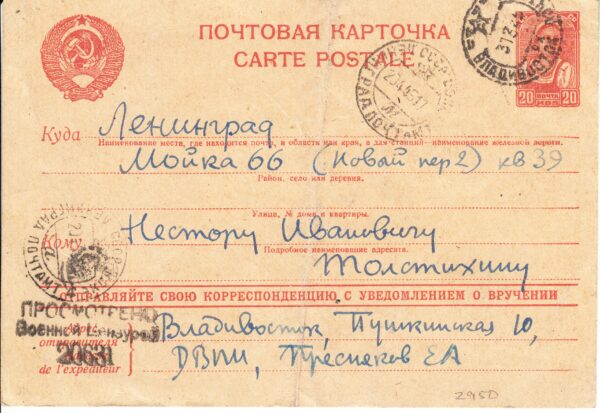 ПОЧТОВАЯ КАРТОЧКА
CARTE POSTALE
20 ПОЧТА 20
ВЛАДИВОСТОК
Куда Ленинград
Наименование места, где находится почта, и области или края, а для станций наименование железной дороги.
Мойка 66 (Новый пер 2) кв 39
Район, село или деревня.
Улица, № дома и квартиры.
Кому Нестору Ивановичу
Подробное наименование адресата.
Толстихину
ЛЕНИНГРАД ПОЧТАМТ
ОТПРАВЛЯЙТЕ СВОЮ КОРРЕСПОНДЕНЦИЮ С УВЕДОМЛЕНИЕМ О ВРУЧЕНИИ
ПРОСМОТРЕНО
Военной Цензурой
20631
Адрес отправителя
de l'expéditeur
Владивосток, Пушкинская 10,
ДВПИ, Пресняков ЕА
2950